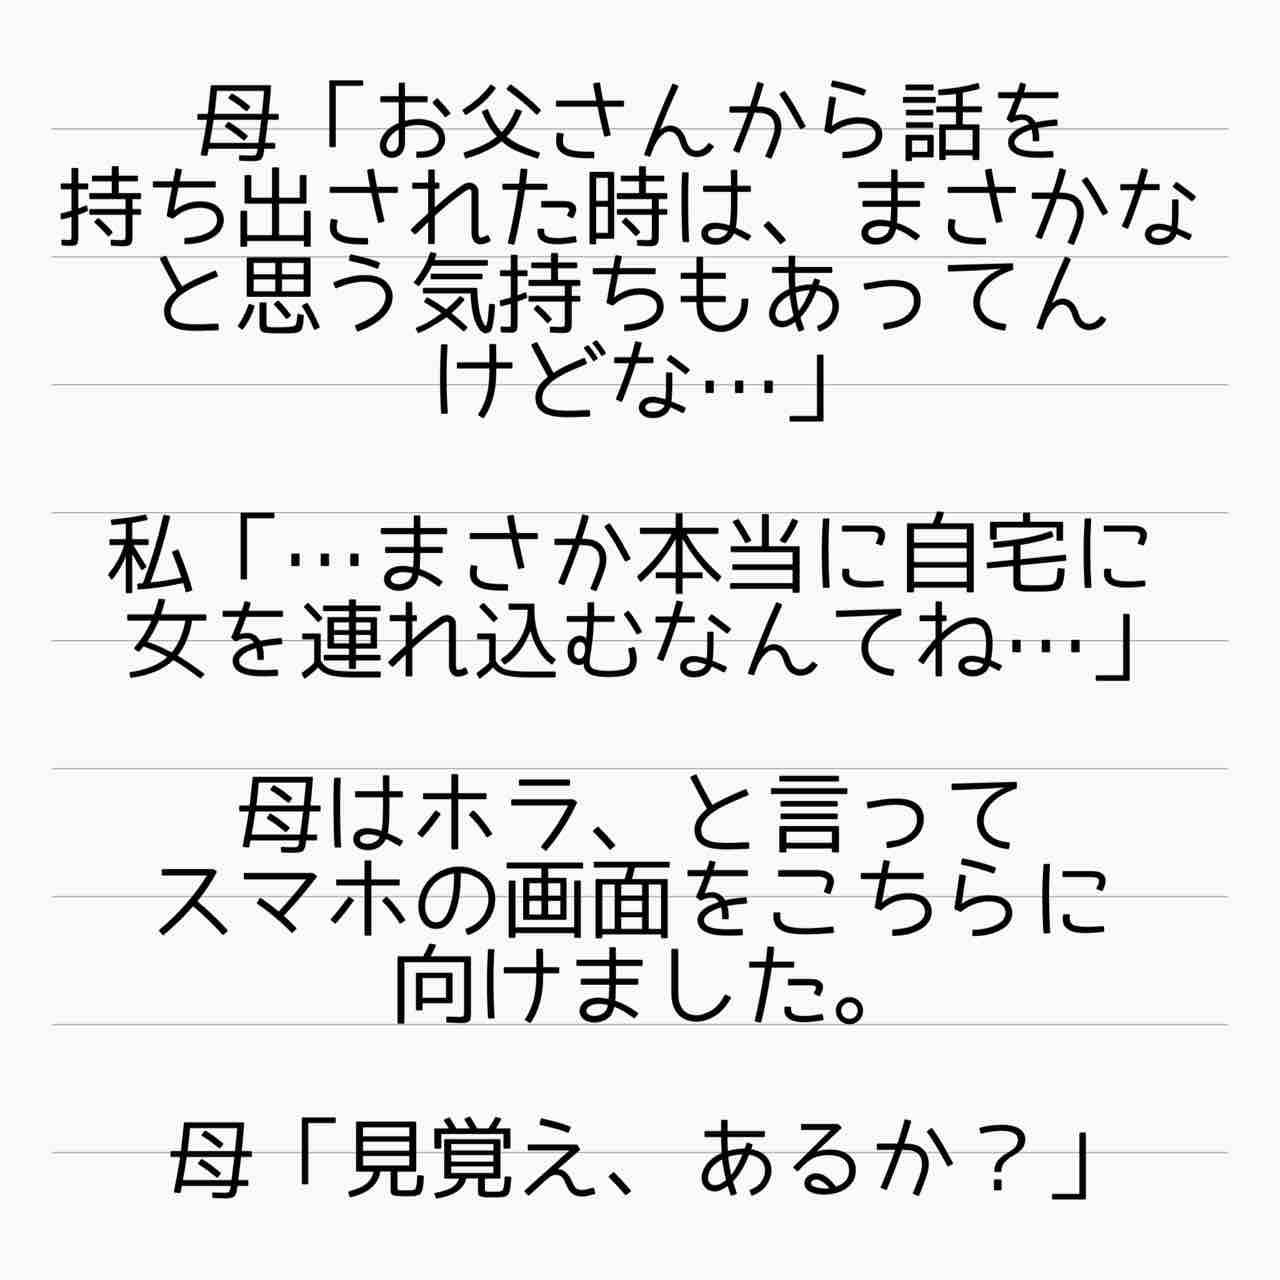 母「お父さんから話を
持ち出された時は、まさかな
と思う気持ちもあってん
けどな…」
私「…まさか本当に自宅に
女を連れ込むなんてね…」
母はホラ、と言って
スマホの画面をこちらに
向けました。
母「見覚え、あるか？」